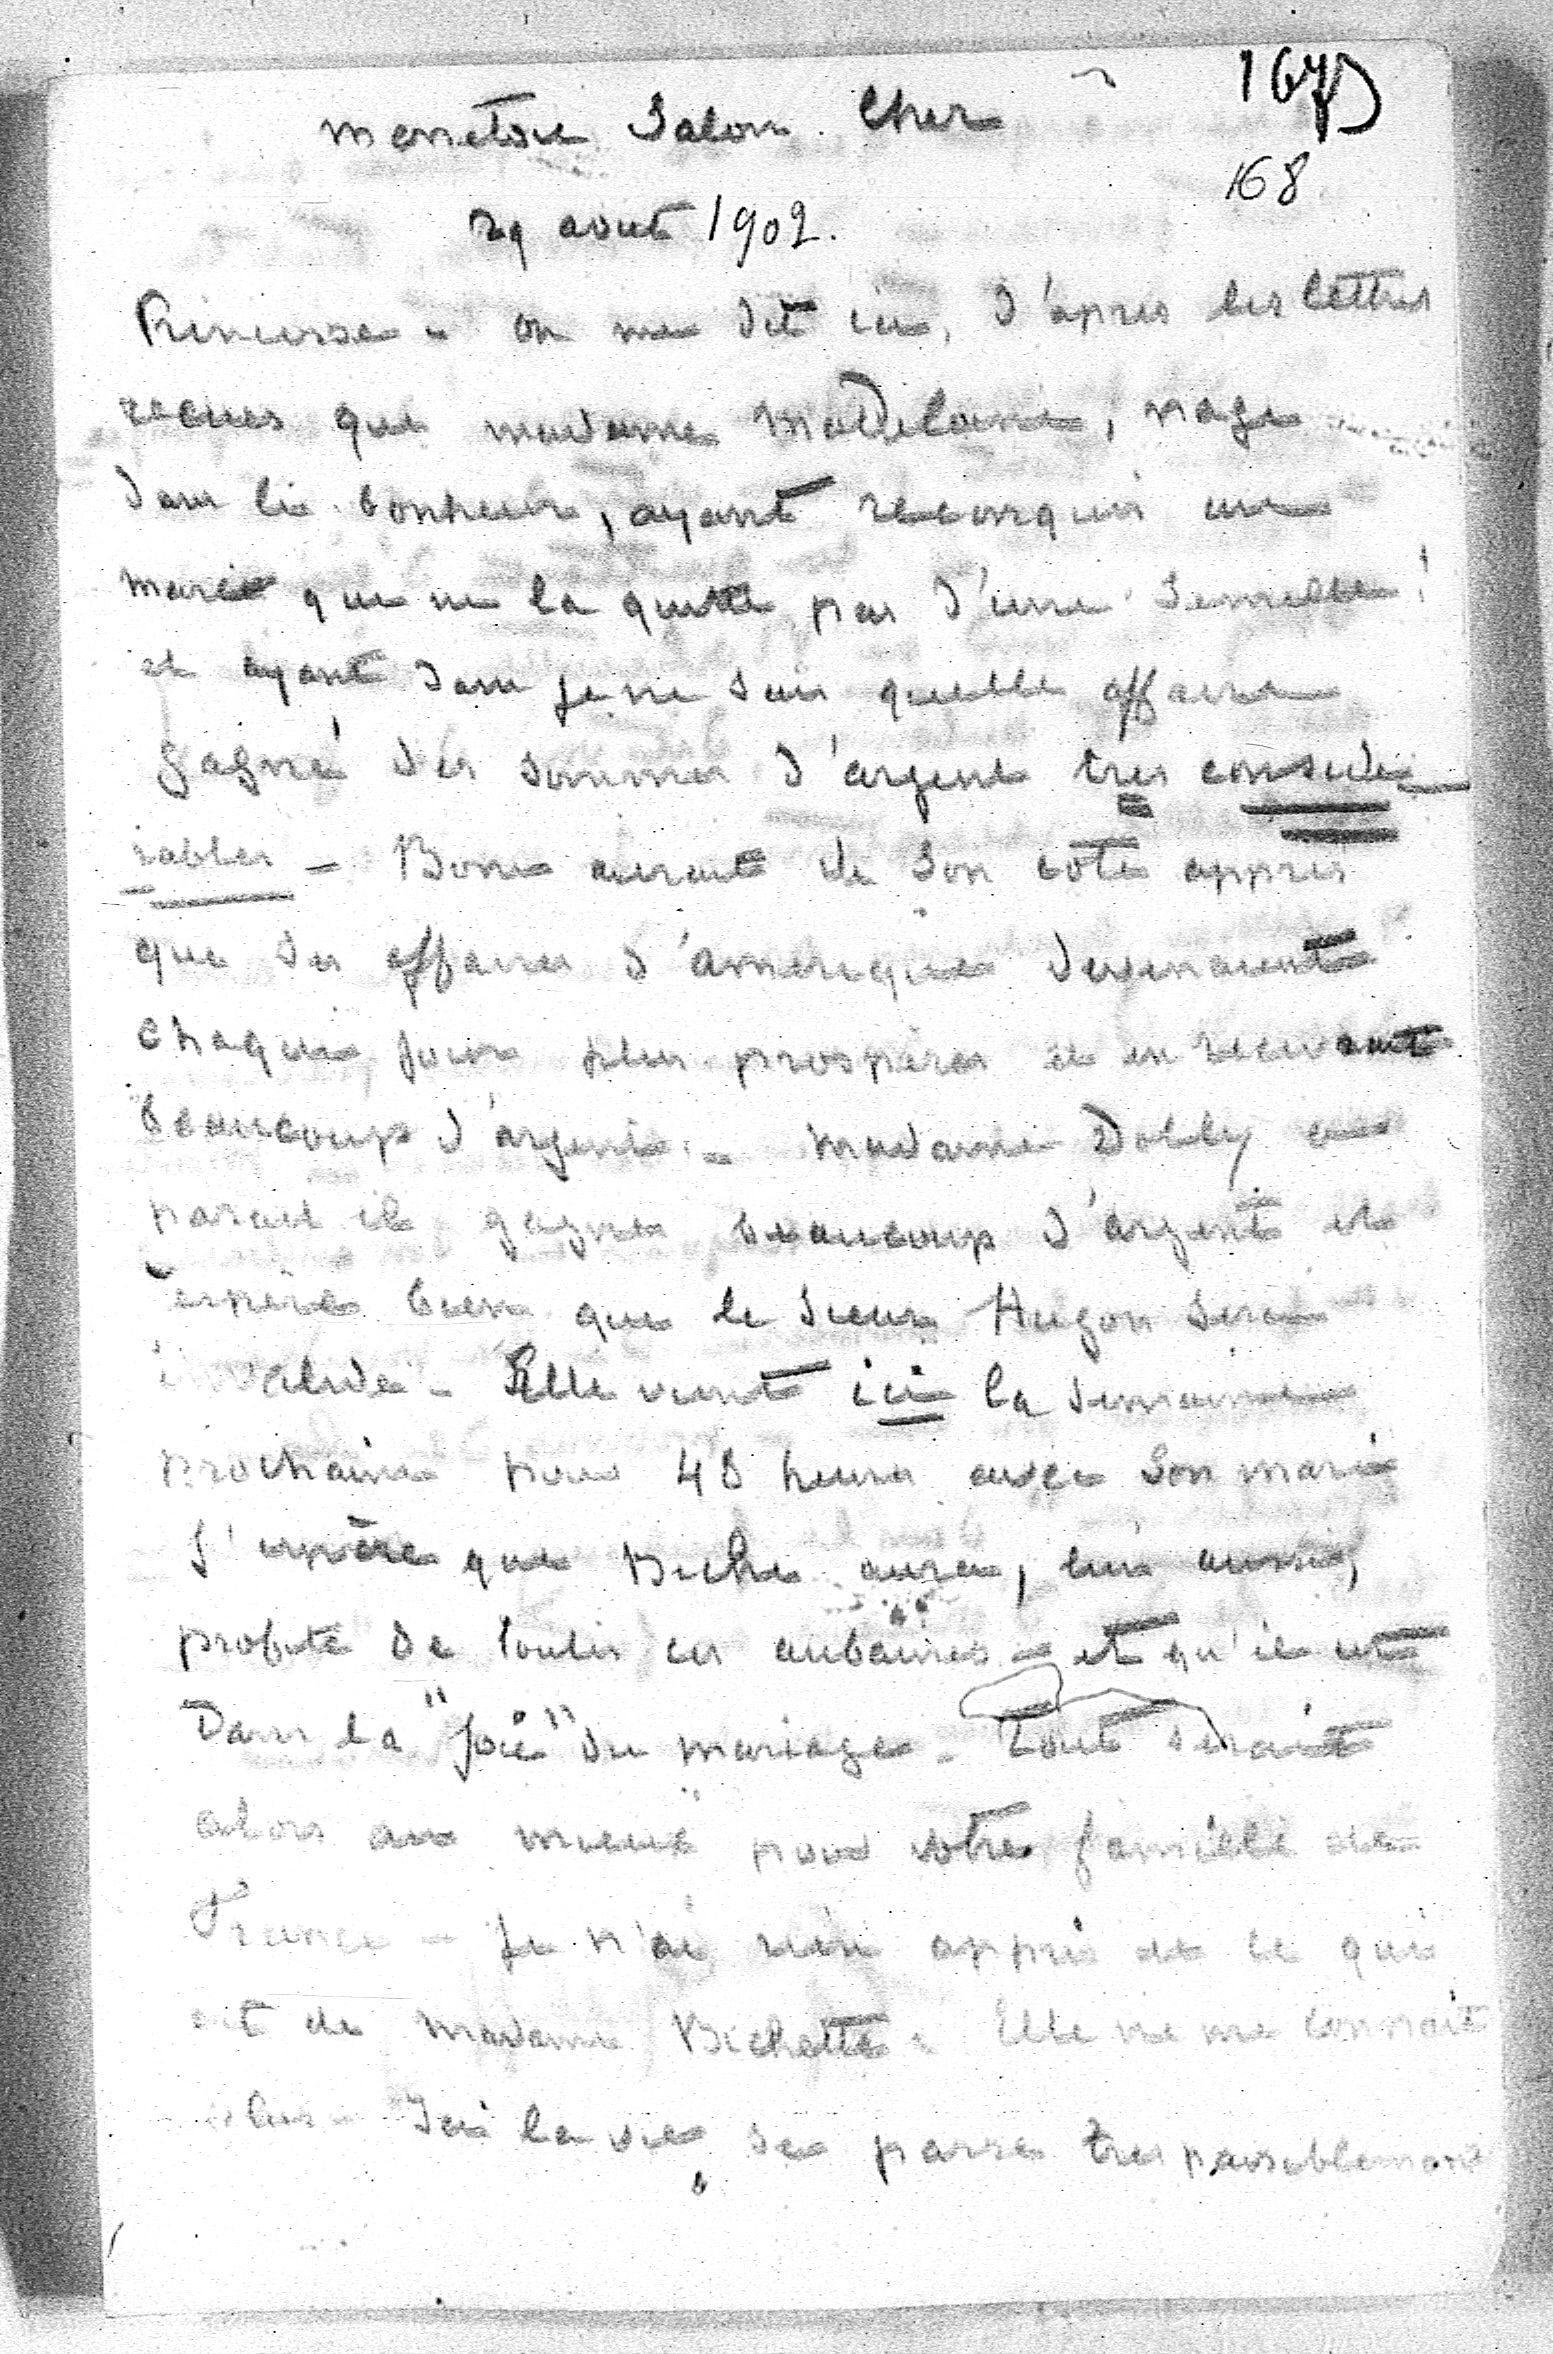 167 B
168
Menetou Salon. Cher
29 aout 1902.
Princesse - on me dit ici, d'apres les lettres
recues que madame Madelaine, nage
dans le bonheur, ayant reconquis un
mari qui ne la quitte pas d'une semelle!
et ayant dans je ne sais quelle affaire
gagné des sommes d'argent tres conside
rables - Boni aurait de son coté appris
que ses affaires d'amerique devenaient
chaque jour plus prosperes et en recevrait
beaucoup d'argent. - madame Dolly a
parait il gagné beaucoup d'argent et
espere bien que le sieur Hugon sera
invalidé - Elle vient ici la semaine
prochaine pour 48 heures avec son mari
J'espère que Biche aura, lui aussi,
profité de toutes ces aubaines - et qu'il est
Dans la "joie" du mariage - Tout serait
alors au mieux pour votre famille de
France - Je n'ai rien appris de ce qui
est de madame Bichette. Elle ne me connait
plus - Ici la vie se passe tres paisiblement